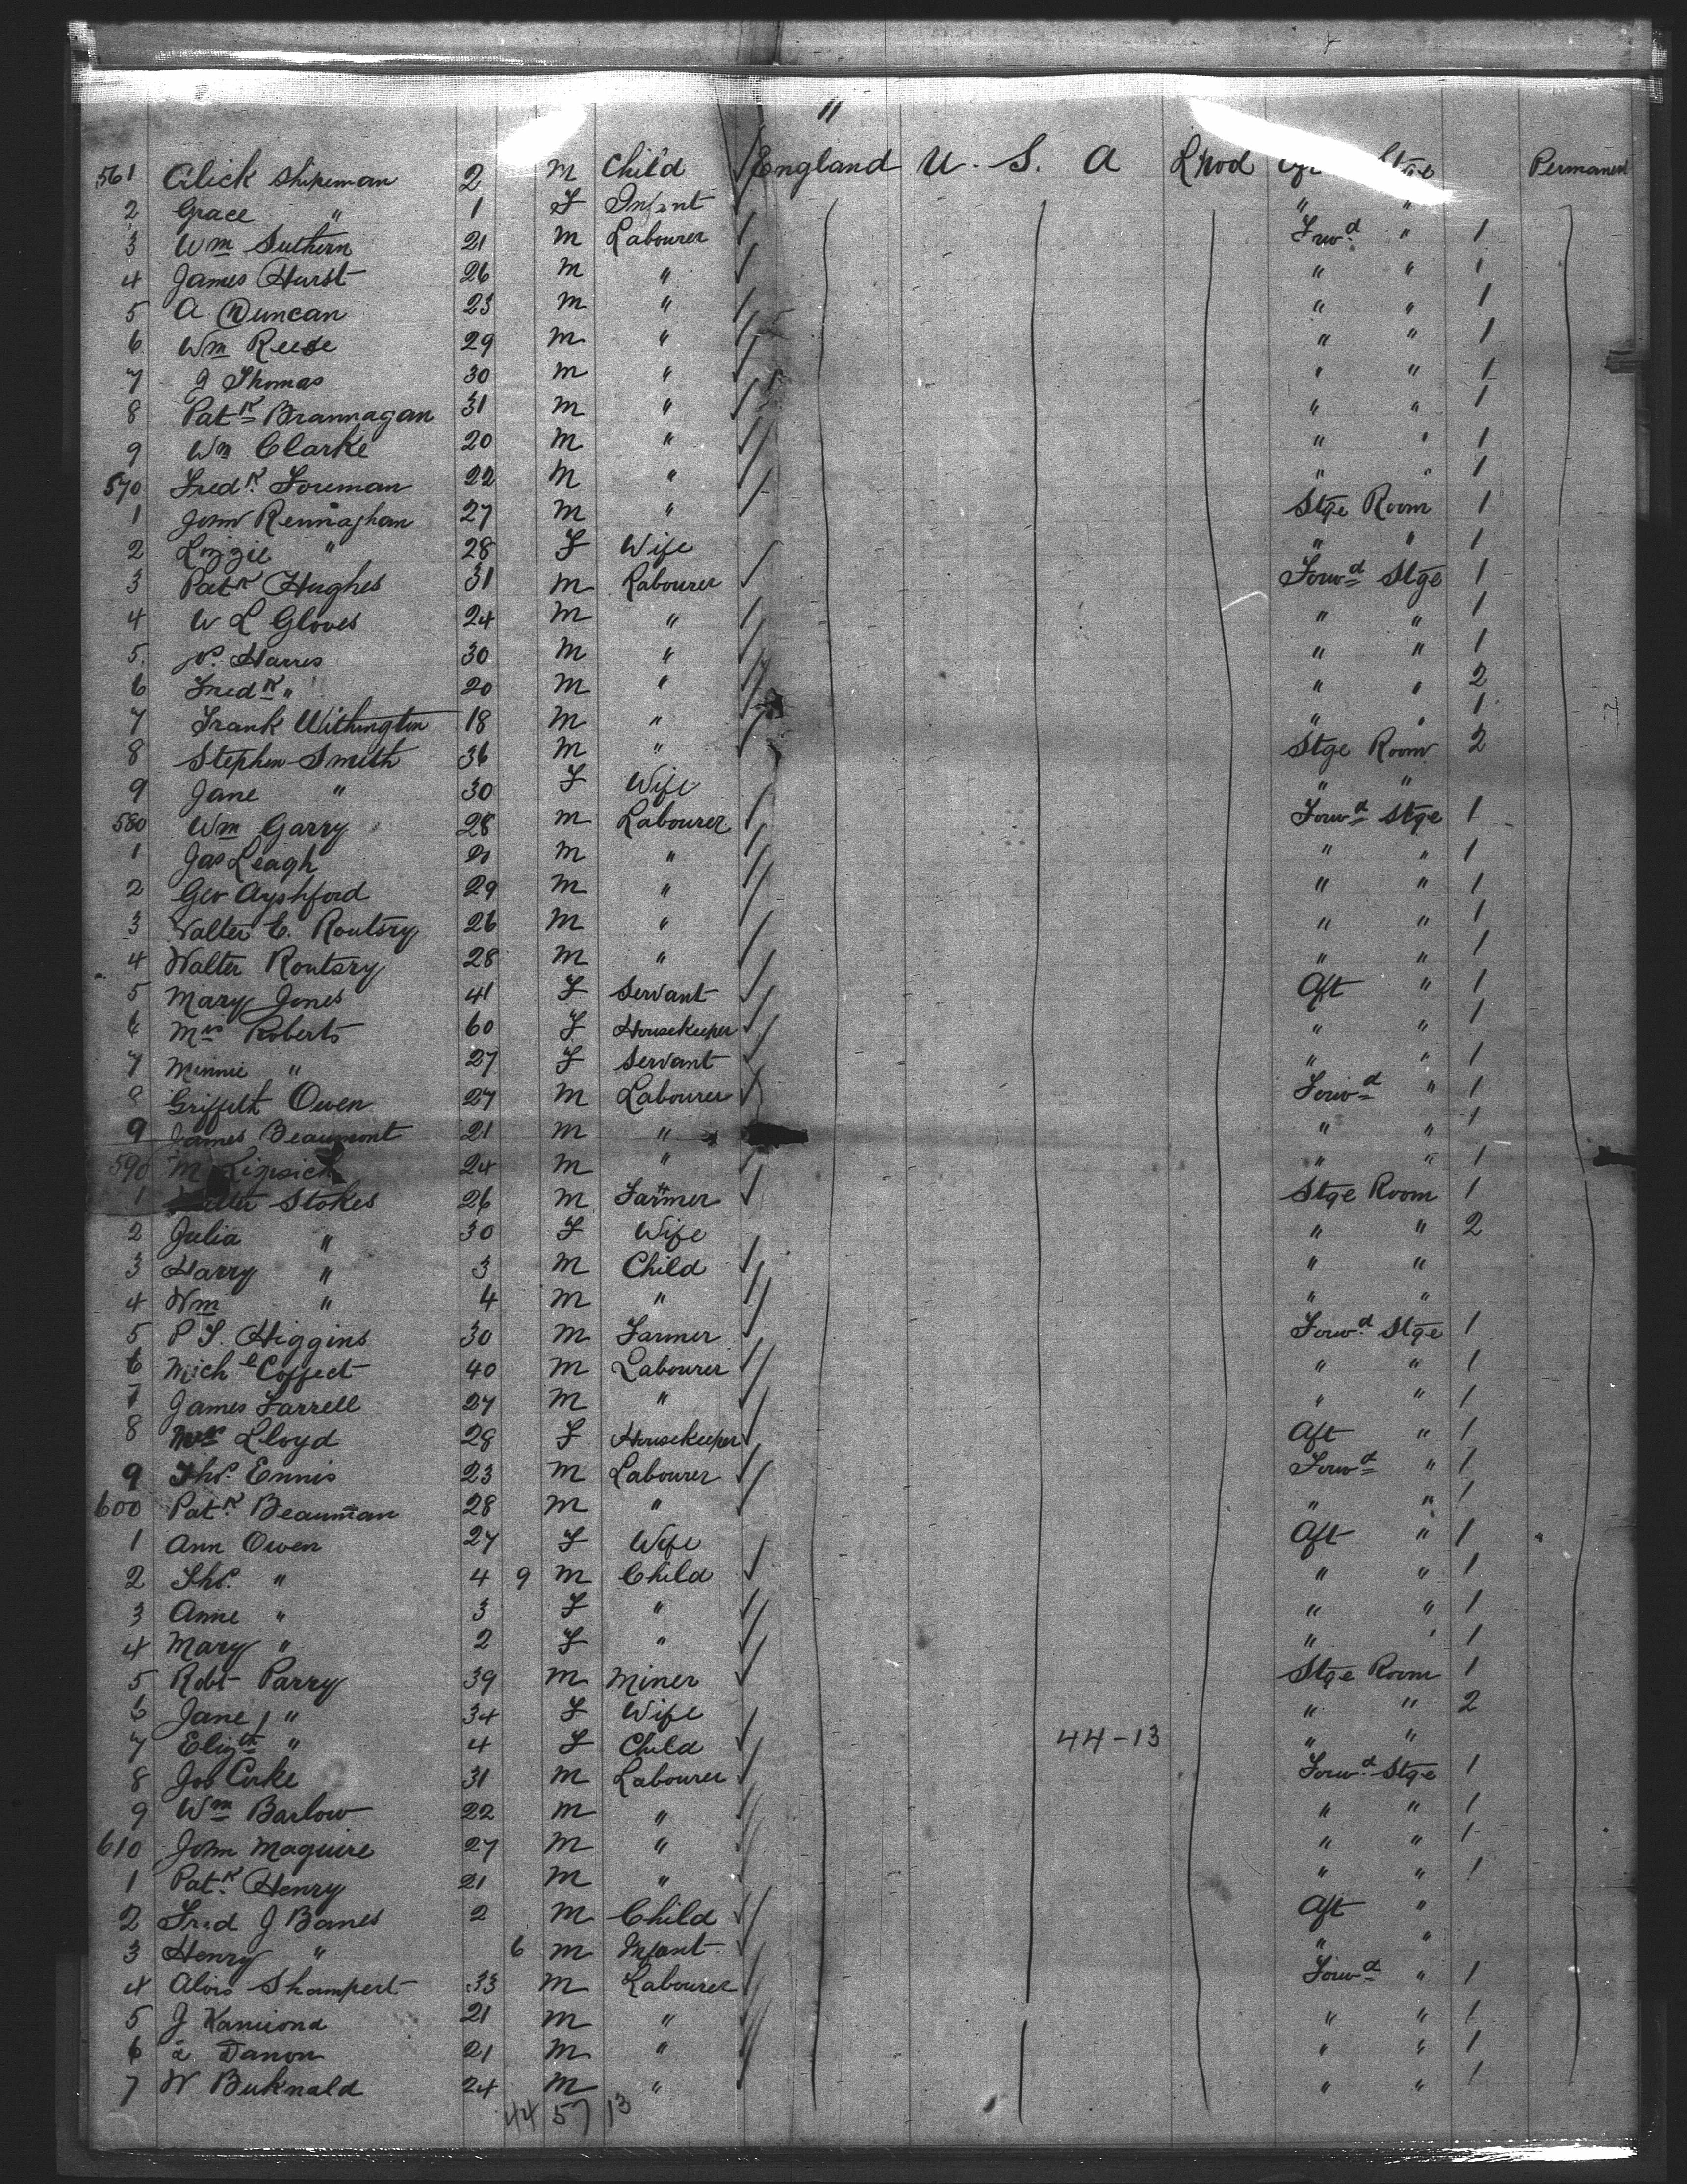 11
561 Alick Shipeman 2 M Child England U. S. A L'pool Stge Permanent
2 Grace " 1 F Infant " "
3 Wm Suthern 21 M Labourer Frwd " 1
4 James Hurst 26 M " " " 1
5 A Duncan 23 M " " " 1
6 Wm Reese 29 M " " " 1
7 J Thomas 30 M " " " 1
8 Patk Brannagan 31 M " " " 1
9 Wm Clarke 20 M " " " 1
570 Fredk. Foreman 22 M " " " 1
1 John Rennaghan 27 M " Stge Room 1
2 Lizzie " 28 F Wife " " 1
3 Patk Hughes 31 M Labourer Forwd Stge 1
4 W L Gloves 24 M " " " 1
5 Harres 30 M " " " 1
6 Fredk " 20 M " " " 2
7 Frank Withington 18 M " " " 1
8 Stephen Smith 36 M " Stge Room 2
9 Jane " 30 F Wife " "
580 Wm Garry 28 M Labourer Forwd Stge 1
1 Jas Leagh M " " " 1
2 Geo Ayshford 29 M " " " 1
3 Walter E. Routsry 26 M " " " 1
4 Walter Routsry 28 M " " " 1
5 Mary Jones 41 F Servant Aft " 1
6 Mrs Roberts 60 F Housekeeper " " 1
7 Minnie " 27 F Servant " " 1
8 Griffith Owen 27 M Labourer Forwd " 1
9 James Beaumont 21 M " " " 1
590 M Lipsick 24 M " " " 1
1 Stokes 26 M Farmer Stge Room 1
2 Julia " 30 F Wife " " 2
3 Harry " 3 M Child " "
4 Wm " 4 M " " "
5 P F. Higgins 30 M Farmer Forwd Stge 1
6 Michl Coffect 40 M Labourer " " 1
7 James Farrell 27 M " " " 1
8 Mrs Lloyd 28 F Housekeeper Aft " 1
9 Thos. Ennis 23 M Labourer Forwd " 1
600 Patk. Beauman 28 M " " " 1
1 Ann Owen 27 F Wife Aft " 1
2 Thos. " 4 9 M Child " " 1
3 Anne " 3 F " " " 1
4 Mary " 2 F " " " 1
5 Robt Parry 39 M Miner Stge Room 1
6 Jane " 34 F Wife " " 2
7 Elizth " 4 F Child 44-13 " "
8 Jos Corke 31 M Labourer Forwd Stge 1
9 Wm Barlow 22 M " " " 1
610 John Maguire 27 M " " " 1
1 Patk. Henry 21 M " " " 1
2 Fred J Banes 2 M Child Aft "
3 Henry " 6 M Infant " "
4 Alois Shampert 33 M Labourer Forwd " 1
5 J Kamiona 21 M " " " 1
6 Danon 21 M " " " 1
7 W Buknald 24 M " " " 1
44 57 13